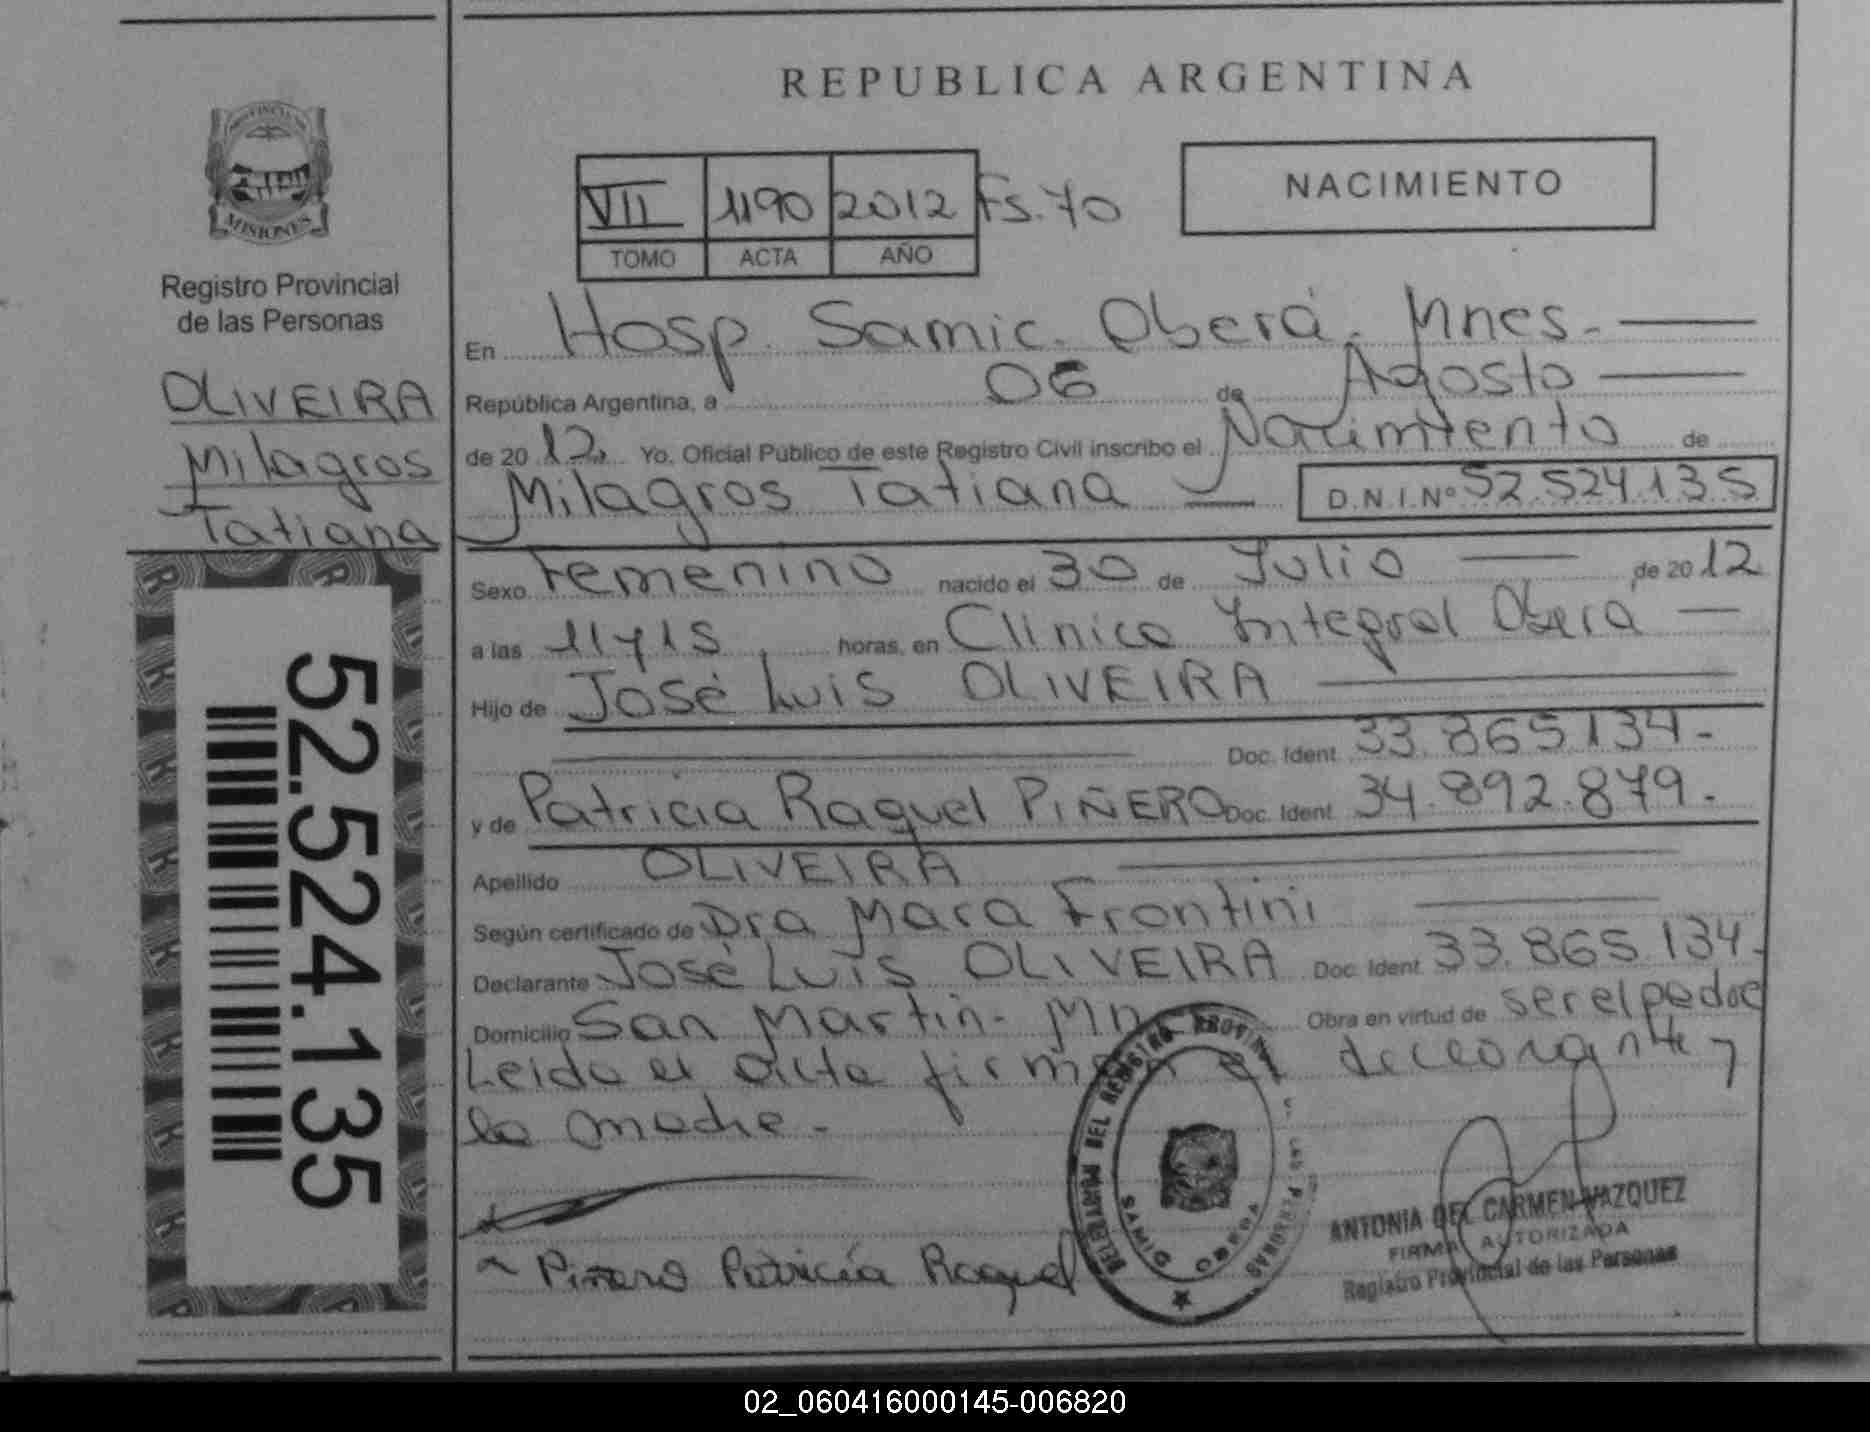 REPUBLICA ARGENTINA
PROVINCIA DE
MISIONES
Registro Provincial
de las Personas
OLIVEIRA
Milagros
Tatiana
52.524.135
VII 1190 2012 Fs.70
TOMO ACTA AÑO
NACIMIENTO
En Hosp. Samic. Oberá. Mnes.
República Argentina, a 06 de Agosto
de 20 12, Yo, Oficial Público de este Registro Civil inscribo el Nacimiento de
Milagros Tatiana D.N.I.Nº 52.524.135
Sexo Femenino nacido el 30 de Julio de 20 12
a las 11 y 15 horas, en Clinica Integral Oberá
Hijo de José Luis OLIVEIRA
Doc. Ident. 33.865.134-
y de Patricia Raquel PIÑERO Doc. Ident. 34.892.879.
Apellido OLIVEIRA
Según certificado de Dra Mara Frontini
Declarante José Luis OLIVEIRA Doc. Ident. 33.865.134-
Domicilio San Martin- Obra en virtud de ser el padre
Leida el acta el y
la madre.-
Piñero Patricia Raquel
DEL REGISTRO PROVINCIAL DE LAS PERSONAS
SAMIC OBERA
ANTONIA DEL CARMEN VAZQUEZ
FIRMA AUTORIZADA
Registro Provincial de las Personas
02_060416000145-006820